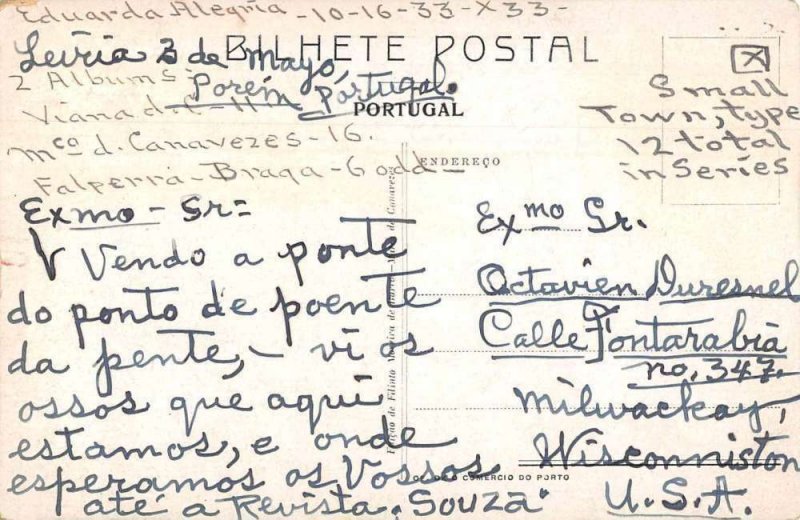 Eduarda Alegria -10-16-33-X33-
BILHETE POSTAL
Leiria 3 de Mayo
Porem, Pórtugal.
PORTUGAL
2 Albums
Viana d. C-11
Mco d. Canavezes-16.
Falperra-Braga-6 odd
Small
Town, type
12 total
in Series
ENDEREÇO
Exmo - Sr=
V Vendo a ponte
do ponto de poente
da pente,- vi os
ossos que aqui
estamos, e onde
esperamos os Vossos
até a Revista "Souza"
Edição de Filinto
de Canavezes
Exmo Sr.
Octavien Duresnel
Calle Fontarabia
no. 347.
Milwackay,
Wisconniston
U.S.A.
COMERCIO DO PORTO